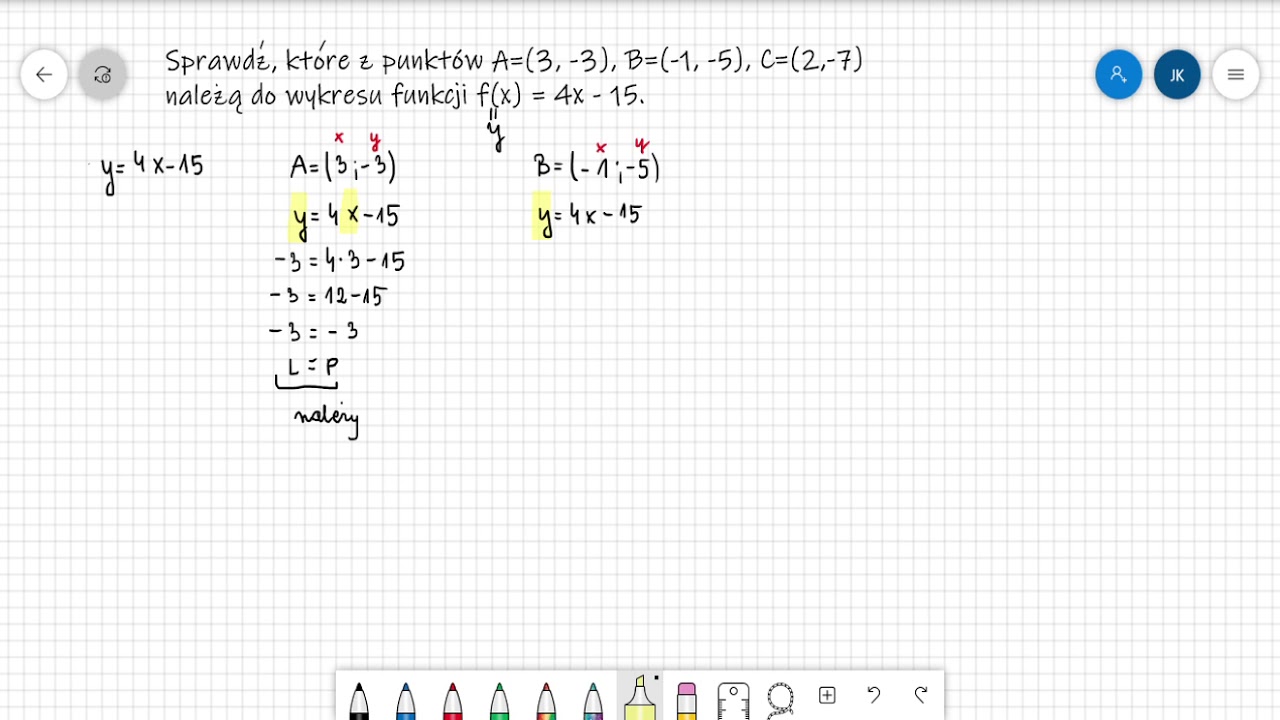 Sprawdź, które z punktów A=(3, -3), B=(-1, -5), C=(2,-7)
należą do wykresu funkcji f(x) = 4x - 15.
=
y
JK
y=4x-15
x y
A=(3;-3)
y=4x-15
-3=4·3-15
-3=12-15
-3=-3
L=P
należy
x y
B=(-1;-5)
y=4x-15